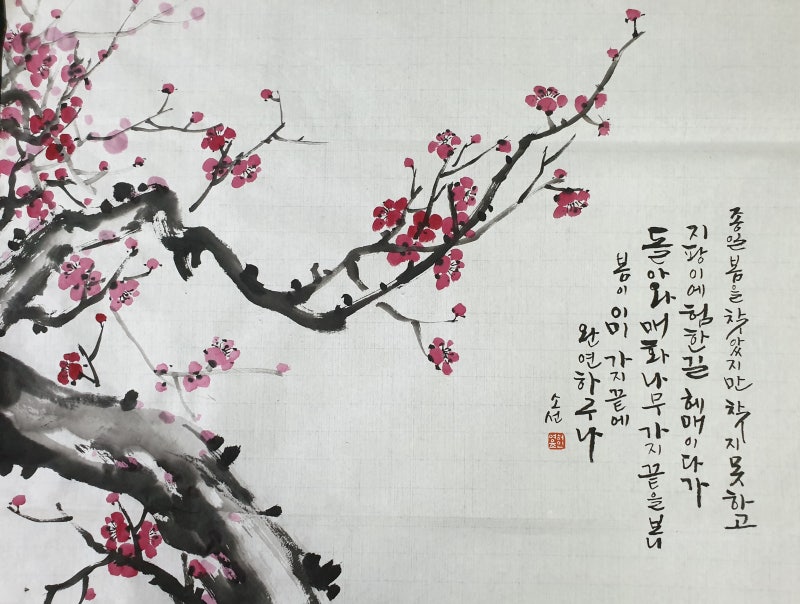 종일 봄을 찾았지만 찾지 못하고
지팡이에 험한 길 헤매이다가
돌아와 매화나무 가지 끝을 보니
봄이 이미 가지 끝에
완연하구나
소선